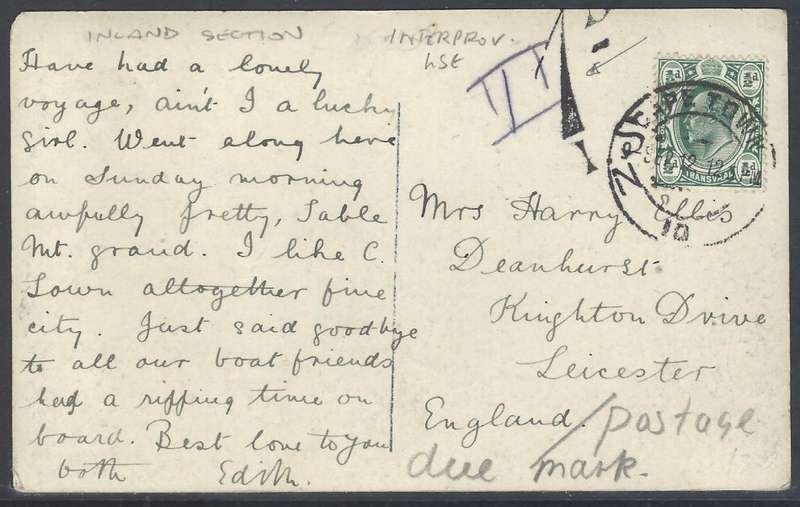 INLAND SECTION
INTERPROV.
USE
Have had a lovely
voyage, ain't I a lucky
girl. Went along here
on Sunday morning
awfully pretty, Table
Mt. grand. I like C.
Town altogether fine
city. Just said goodbye
to all our boat friends
had a ripping time on
board. Best love to you
both Edith.
VI
I
½d ½d
CAPE TOWN
10
½d TRANSVAAL ½d
Mrs Harry Ellis
Deanhurst
Knighton Drive
Leicester
England.
postage
due mark.